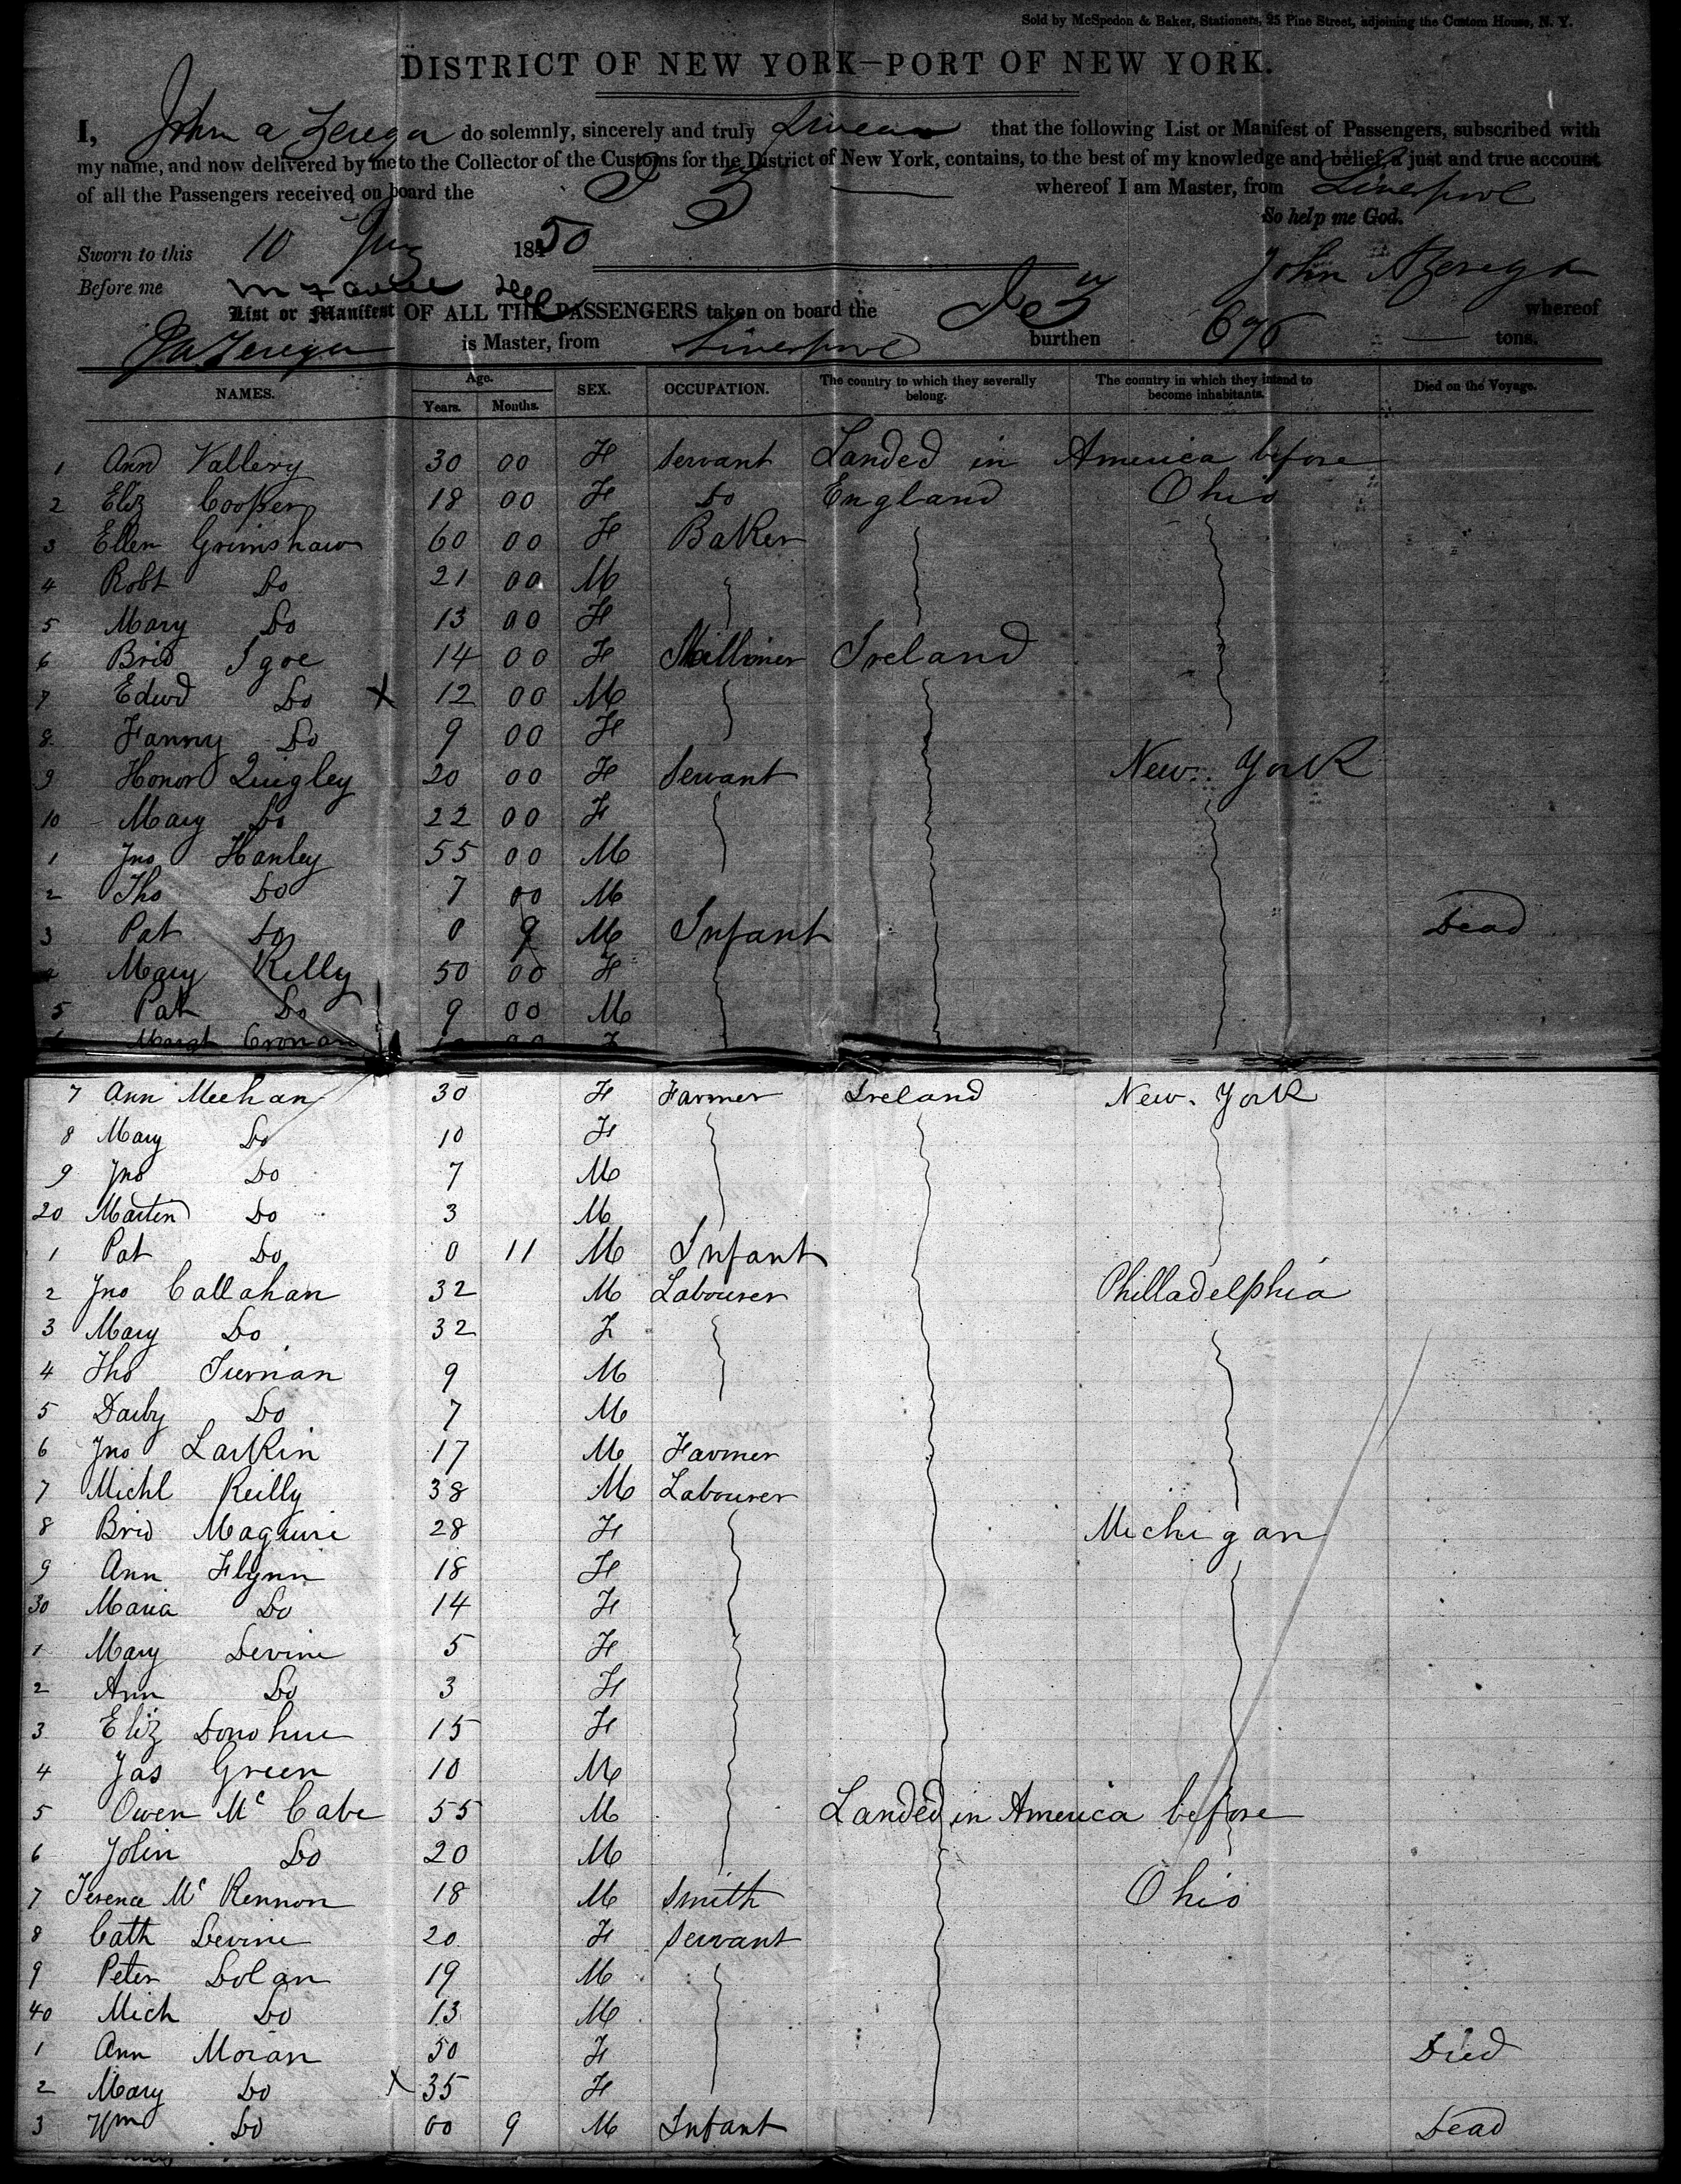 Sold by McSpedon & Baker, Stationers, 25 Pine Street, adjoining the Custom House, N. Y.
DISTRICT OF NEW YORK—PORT OF NEW YORK.
I, John A Zerega do solemnly, sincerely and truly Swear that the following List or Manifest of Passengers, subscribed with
my name, and now delivered by me to the Collector of the Customs for the District of New York, contains, to the best of my knowledge and belief, a just and true account
of all the Passengers received on board the I Z whereof I am Master, from Liverpool
So help me God.
Sworn to this 10 1850
Before me John A Zerega
List or Manifest OF ALL THE PASSENGERS taken on board the I Z whereof
J A Zerega is Master, from Liverpool burthen 696 tons.
NAMES. Age. Years. Months. SEX. OCCUPATION. The country to which they severally belong. The country in which they intend to become inhabitants. Died on the Voyage.
1 Ann Vallery 30 00 F Servant Landed in America before
2 Eliz Cooper 18 00 F Do England Ohio
3 Ellen Grimshaw 60 00 F Baker
4 Robt Do 21 00 M
5 Mary Do 13 00 F
6 Brid Igoe 14 00 F Milliner Ireland
7 Edwd Do X 12 00 M
8 Fanny Do 9 00 F
9 Honor Quigley 20 00 F Servant New York
10 Mary Do 22 00 F
1 Jno Hanley 55 00 M
2 Tho Do 7 00 M
3 Pat Do 0 9 M Infant Dead
4 Mary Kelly 50 00 F
5 Pat Do 9 00 M
Margt Cronan 00 F
7 Ann Meehan 30 F Farmer Ireland New York
8 Mary Do 10 F
9 Jno Do 7 M
20 Martin Do 3 M
1 Pat Do 0 11 M Infant
2 Jno Callahan 32 M Labourer Philladelphia
3 Mary Do 32 F
4 Tho Tiernan 9 M
5 Darby Do 7 M
6 Jno Larkin 17 M Farmer
7 Michl Reilly 38 M Labourer
8 Brid Maguire 28 F Michigan
9 Ann Flynn 18 F
30 Maria Do 14 F
1 Mary Devine 5 F
2 Ann Do 3 F
3 Eliz Donohue 15 F
4 Jas Green 10 M
5 Owen Mc Cabe 55 M Landed in America before
6 John Do 20 M
7 Terence Mc Kennon 18 M Smith Ohio
8 Cath Devine 20 F Servant
9 Peter Dolan 19 M
40 Mich Do 13 M
1 Ann Moran 50 F Died
2 Mary Do X 35 F
3 Wm Do 00 9 M Infant Dead